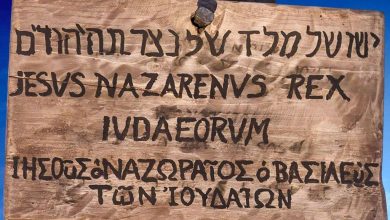 ישו של מלד של נצרת
JESVS NAZARENVS REX
IVDAEORVM
ΙΗΣΟῦΣ ὁ ΝΑΖΩΡΑῖΟΣ ὁ ΒΑΣΙΛΕῦΣ
ΤῶΝ ἸΟΥΔΑΊΩΝ